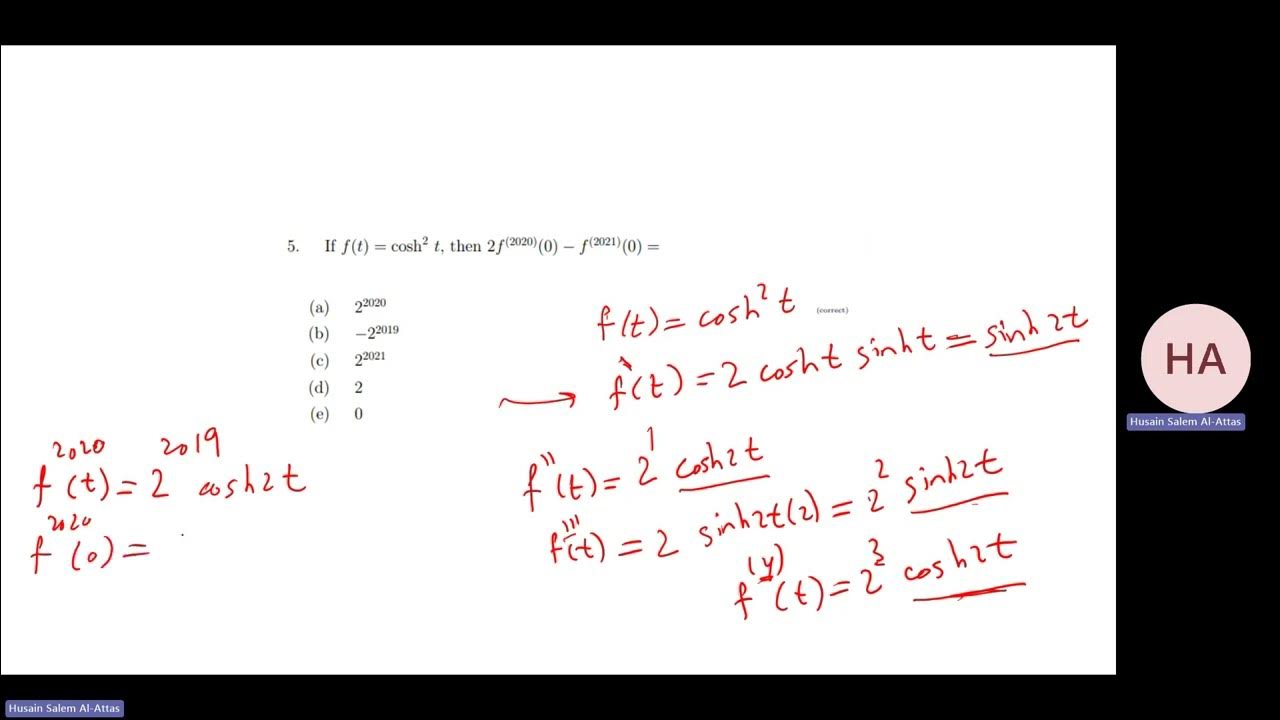 5. If f(t) = cosh² t, then 2f⁽²⁰²⁰⁾(0) − f⁽²⁰²¹⁾(0) =
(a) 2²⁰²⁰
(correct)
(b) −2²⁰¹⁹
(c) 2²⁰²¹
(d) 2
(e) 0
f(t) = cosh² t
f'(t) = 2 cosh t sinh t = sinh 2t
f''(t) = 2¹ cosh 2t
f'''(t) = 2 sinh 2t (2) = 2² sinh 2t
f⁽⁴⁾(t) = 2³ cosh 2t
f²⁰²⁰(t) = 2²⁰¹⁹ cosh 2t
f²⁰²⁰(0) =
HA
Husain Salem Al-Attas
Husain Salem Al-Attas